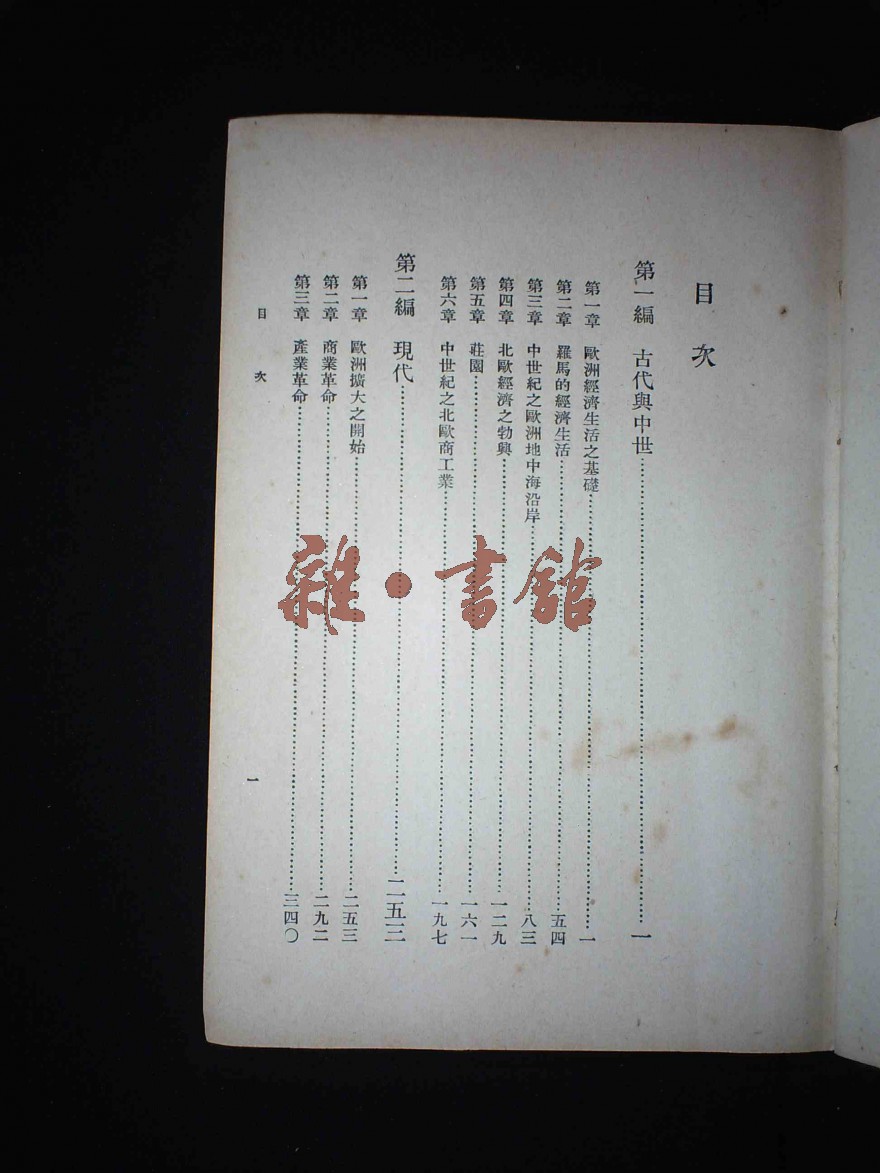 目次
第一編 古代與中世……一
第一章 歐洲經濟生活之基礎……一
第二章 羅馬的經濟生活……五四
第三章 中世紀之歐洲地中海沿岸……八三
第四章 北歐經濟之勃興……一二九
第五章 莊園……一六一
第六章 中世紀之北歐商工業……一九七
第二編 現代……二五三
第一章 歐洲擴大之開始……二五三
第二章 商業革命……二九二
第三章 產業革命……三四〇
目次
一
雜·書館